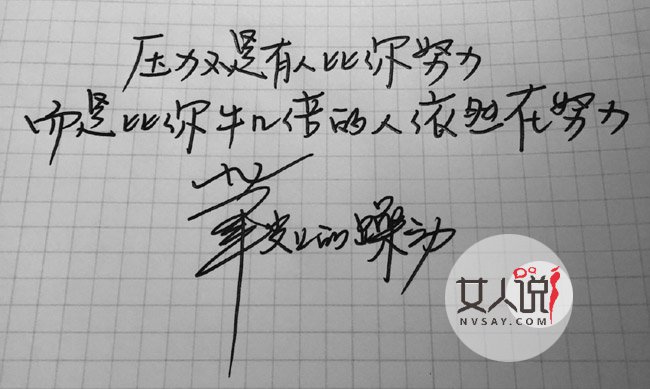 压力不是有人比你努力
而是比你牛几倍的人依然在努力
筆尖上的躁动
女人说
NVSAY.COM